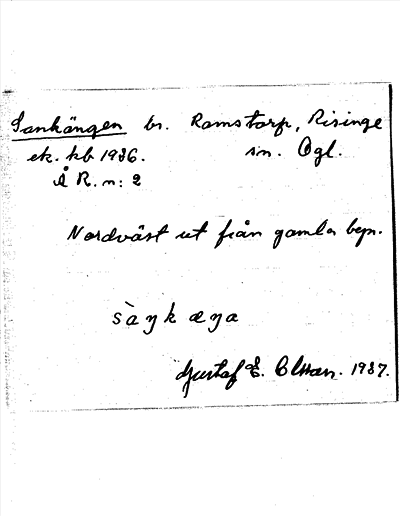 Sankängen br. Ramstorp, Risinge
ek. kb 1936. sn. Ögl.
Å R. n: 2
Nordväst ut från gamla byn.
sàŋkæŋa
Gustaf E. Olsson. 1937.